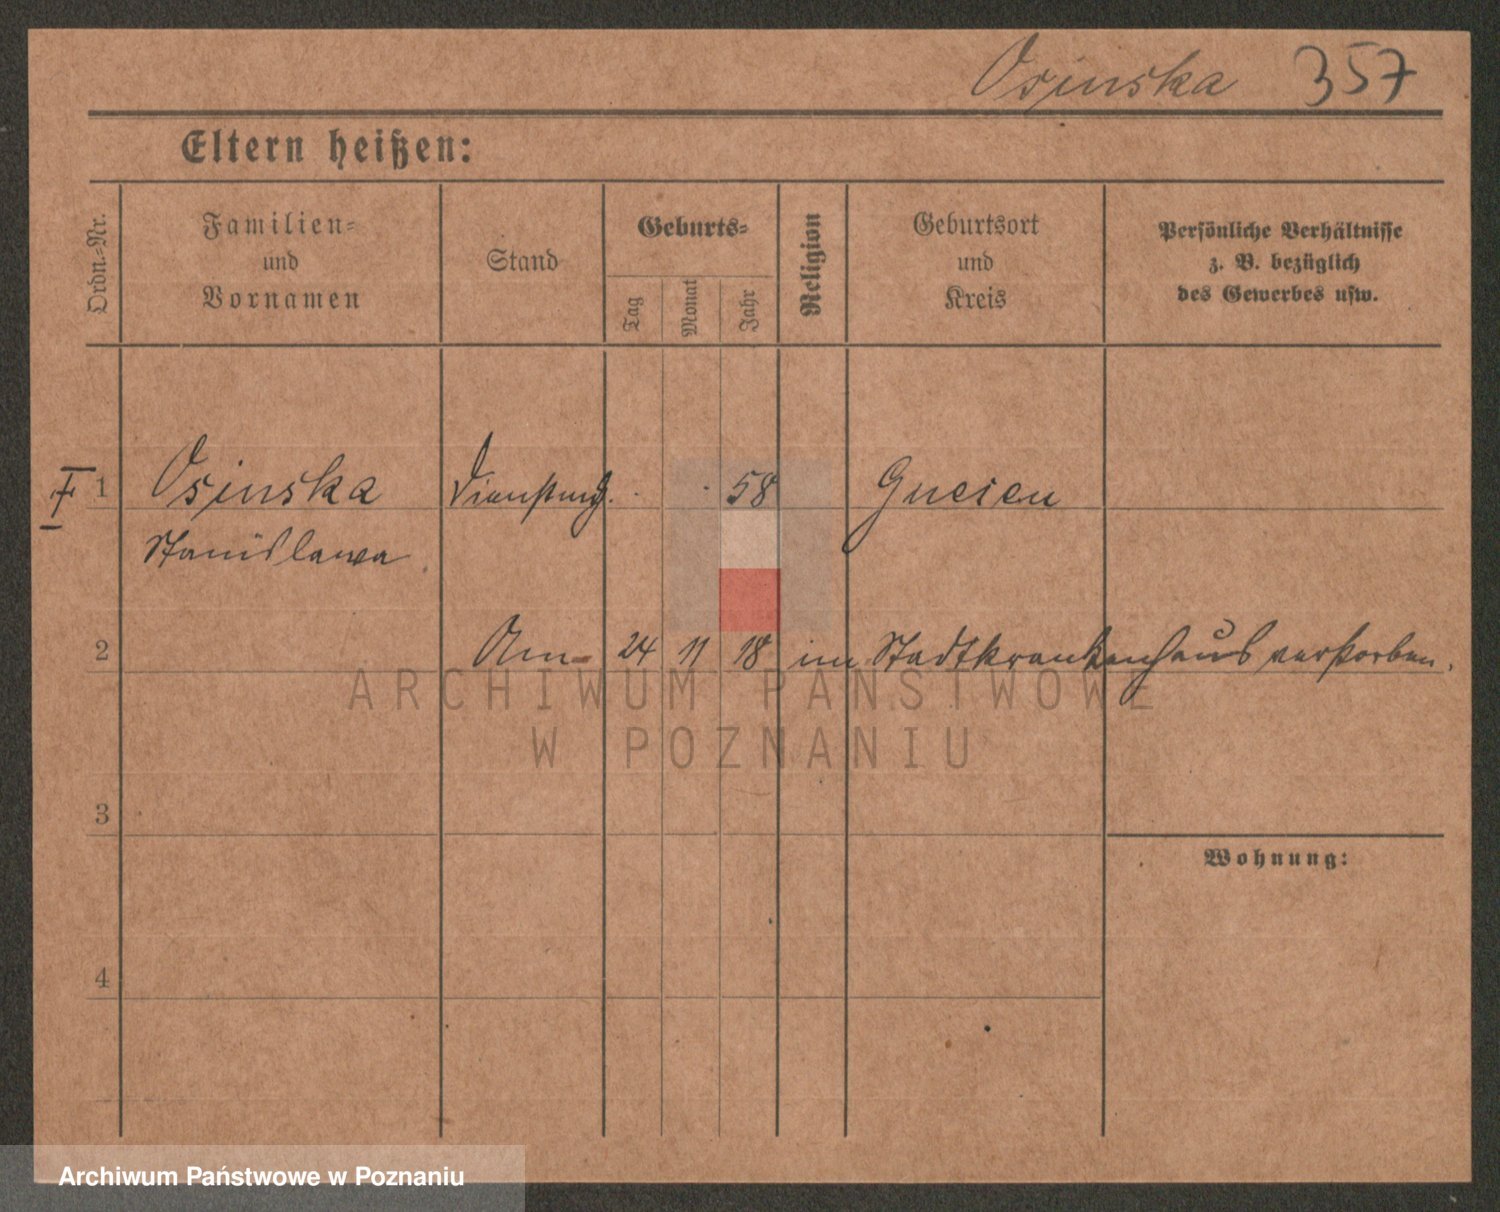 Osinska 357
Eltern heißen:
Ordn.-Nr.
Familien-
und
Vornamen
Stand
Geburts-
Tag
Monat
Jahr
Religion
Geburtsort
und
Kreis
Persönliche Verhältnisse
z. B. bezüglich
des Gewerbes usw.
1 Osinska 58 Gnesen
Stanislawa
2 Am 24 11 18 im Stadtkrankenhaus verstorben.
ARCHIWUM PAŃSTWOWE
W POZNANIU
3
Wohnung:
4
Archiwum Państwowe w Poznaniu